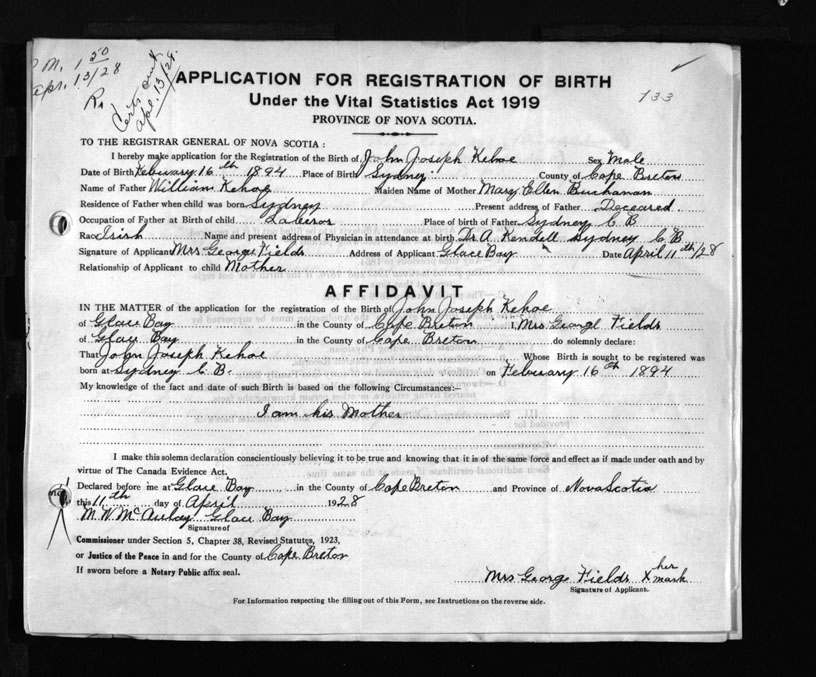 P.M. 1 50
Apr. 13/28
Certs sent
Apl. 13/28.
133
APPLICATION FOR REGISTRATION OF BIRTH
Under the Vital Statistics Act 1919
PROVINCE OF NOVA SCOTIA.
TO THE REGISTRAR GENERAL OF NOVA SCOTIA :
I hereby make application for the Registration of the Birth of John Joseph Kehoe Sex Male
Date of Birth Febuary 16th 1894 Place of Birth Sydney County of Cape Breton
Name of Father William Kehoe Maiden Name of Mother Mary Ellen Buchanan
Residence of Father when child was born Sydney Present address of Father Deceared
Occupation of Father at Birth of child Laberor Place of birth of Father Sydney C B
Race Irish Name and present address of Physician in attendance at birth Dr A. Kendell Sydney C B
Signature of Applicant Mrs George Fields Address of Applicant Glace Bay Date April 11th/28
Relationship of Applicant to child Mother
AFFIDAVIT
IN THE MATTER of the application for the registration of the Birth of John Joseph Kehoe
of Glace Bay in the County of Cape Breton I, Mrs George Fields
of Glace Bay in the County of Cape Breton do solemnly declare:
That John Joseph Kehoe Whose Birth is sought to be registered was
born at Sydney C B. on Febuary 16th 1894
My knowledge of the fact and date of such Birth is based on the following Circumstances:—
I am his Mother
I make this solemn declaration conscientiously believing it to be true and knowing that it is of the same force and effect as if made under oath and by
virtue of The Canada Evidence Act.
Declared before me at Glace Bay in the County of Cape Breton and Province of Nova Scotia
this 11th day of April 1928
M. W. McAulay Glace Bay
Signature of
Commissioner under Section 5, Chapter 38, Revised Statutes, 1923,
or Justice of the Peace in and for the County of Cape Breton
If sworn before a Notary Public affix seal.
Mrs George Fields X her mark
Signature of Applicant.
For Information respecting the filling out of this Form, see Instructions on the reverse side.